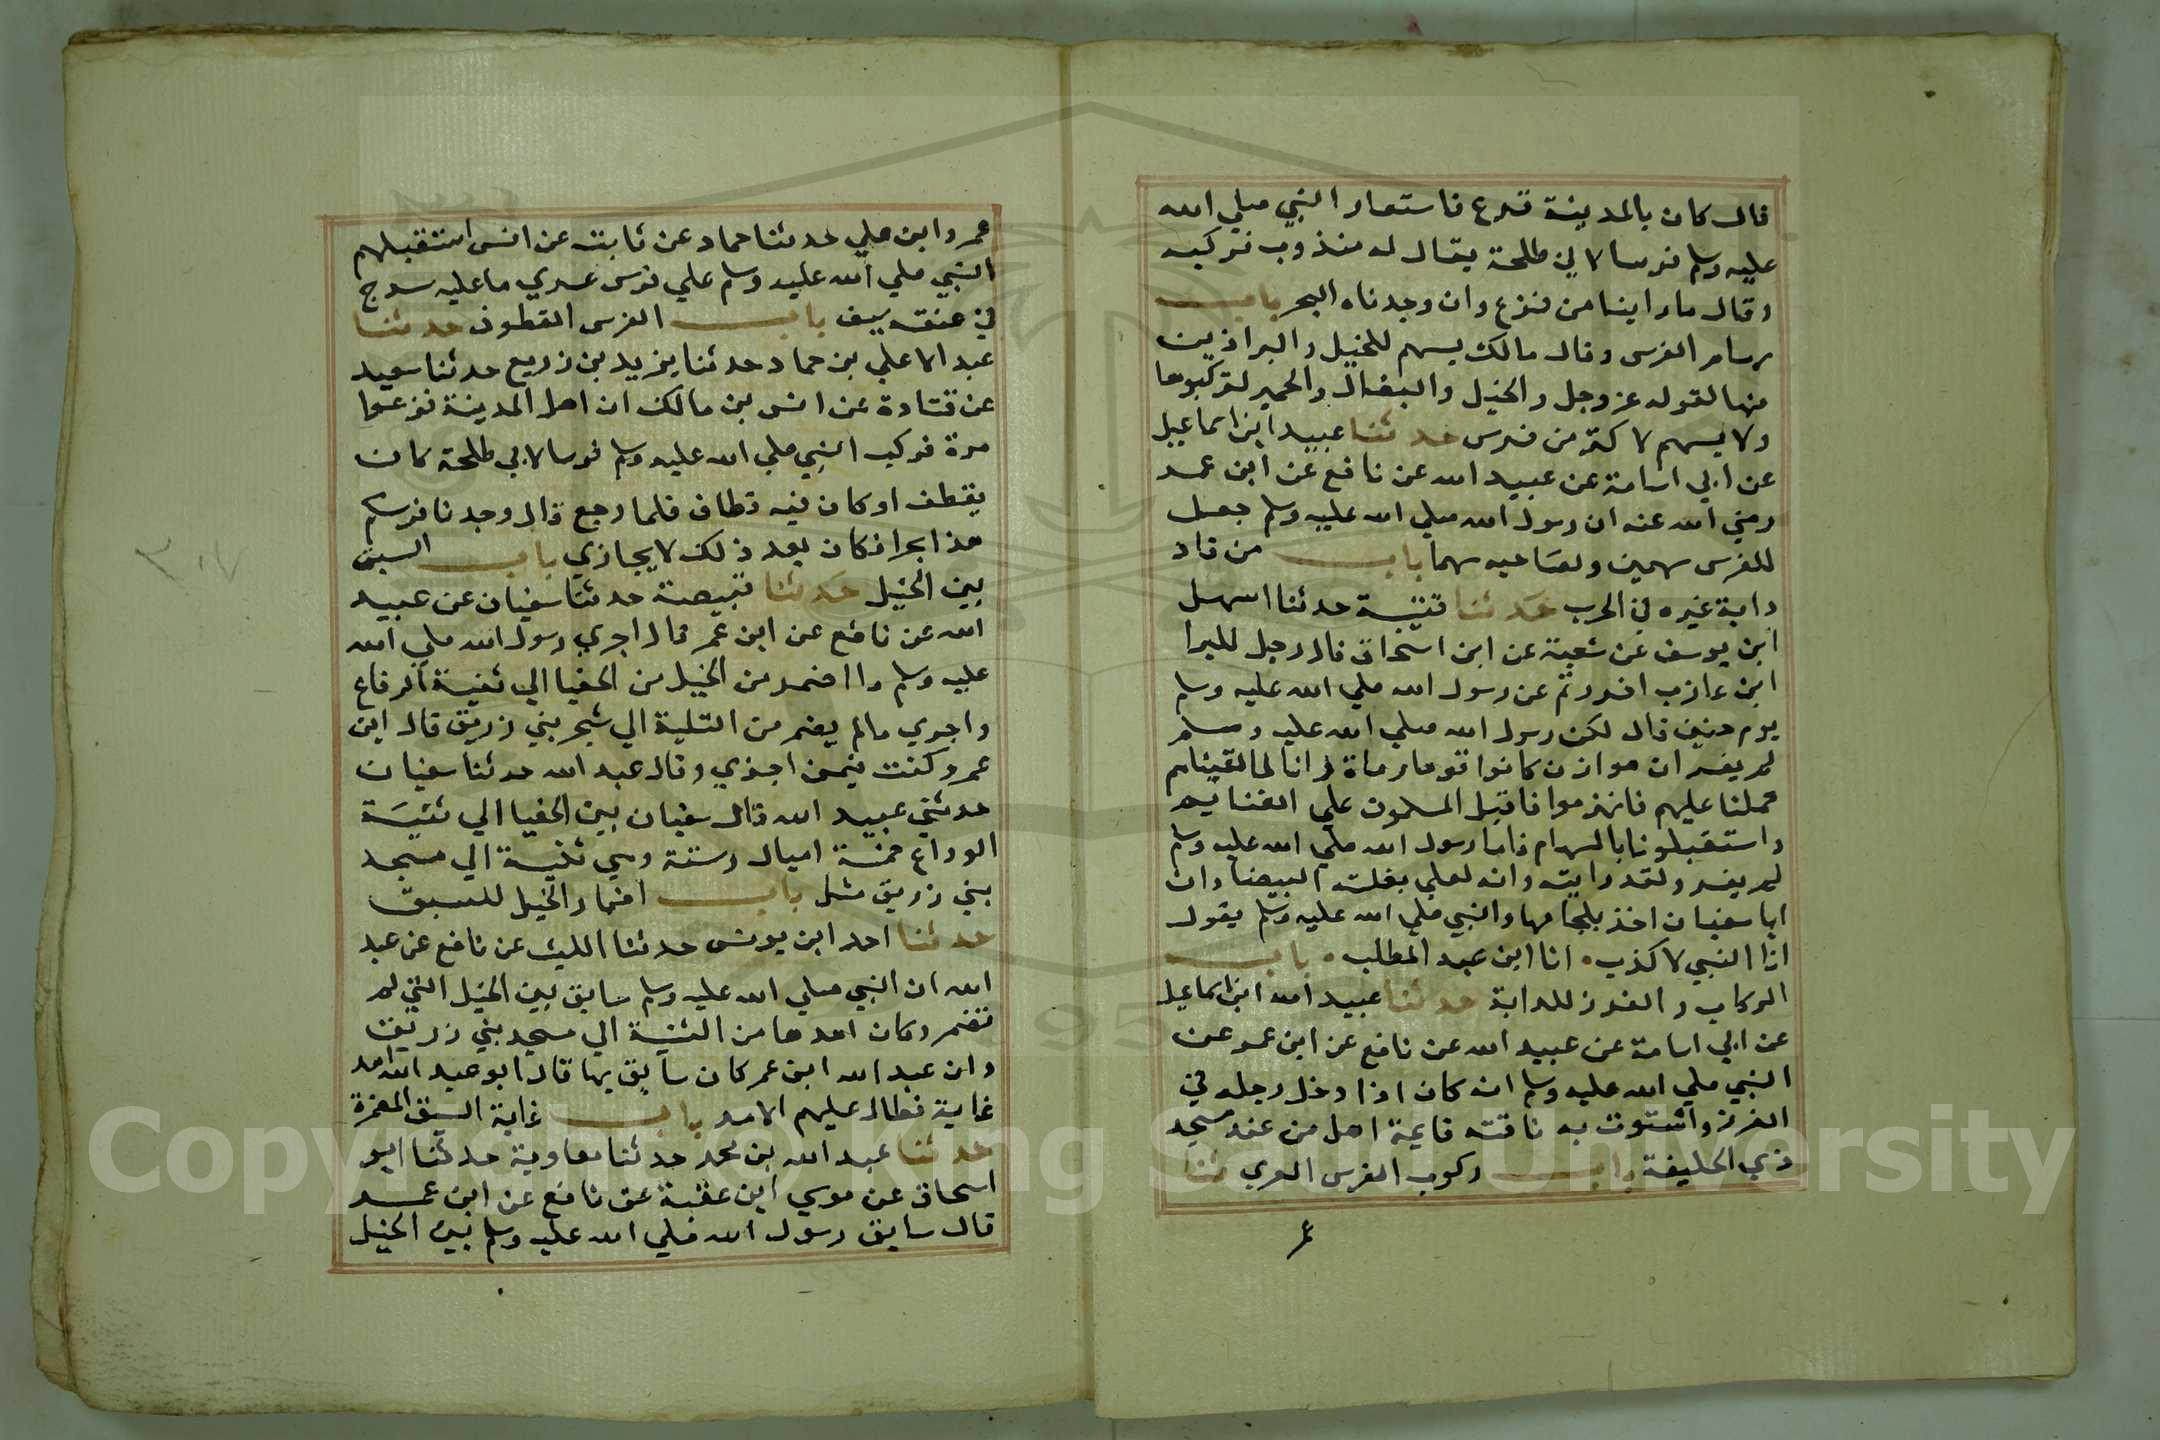 قال كان بالمدينة فزع فاستعار النبي صلي الله
عليه وسلم فرسا لابي طلحة يقال له مندوب فركبه
وقال ما راينا من فزع وان وجدناه البحر باب
سهام الفرس وقال مالك يسهم للخيل والبراذين
منها لقوله عز وجل والخيل والبغال والحمير لتركبوها
ولا يسهم لاكثر من فرس حدثنا عبيد ابن اسماعيل
عن ابي اسامة عن عبيد الله عن نافع عن ابن عمر
رضي الله عنه ان رسول الله صلي الله عليه وسلم جعل
للفرس سهمين ولصاحبه سهما باب من قاد
دابة غيره في الحرب حدثنا قتيبة حدثنا سهل
ابن يوسف عن شعبة عن ابن اسحاق قال رجل للبرا
ابن عازب افررتم عن رسول الله صلي الله عليه وسلم
يوم حنين قال لكن رسول الله صلي الله عليه وسلم
لم يفر ان هوازن كانوا قوما رماة وانا لما لقيناهم
حملنا عليهم فانهزموا فاقبل المسلمون علي الغنايم
واستقبلونا بالسهام فاما رسول الله صلي الله عليه وسلم
لم يفر ولقد رايته وانه لعلي بغلته البيضا وان
ابا سفيان اخذ بلجامها والنبي صلي الله عليه وسلم يقول
انا النبي لا كذب • انا ابن عبد المطلب • باب
الركاب والغرز للدابة حدثنا عبيد الله ابن اسماعيل
عن ابي اسامة عن عبيد الله عن نافع عن ابن عمر عن
النبي صلي الله عليه وسلم انه كان اذا دخل رجله في
الغرز واستوت به ناقته قايمة اهل من عند مسجد
ذي الحليفة باب ركوب الفرس العري ثنا
عمرو ابن علي حدثنا حماد عن ثابت عن انس استقبلهم
النبي صلي الله عليه وسلم علي فرس عري ما عليه سرج
في عنقه سيف باب الفرس القطوف حدثنا
عبد الاعلي بن حماد حدثنا يزيد بن زريع حدثنا سعيد
عن قتادة عن انس بن مالك ان اهل المدينة فزعوا
مرة فركب النبي صلي الله عليه وسلم فرسا لابي طلحة كان
يقطف او كان فيه قطاف فلما رجع قال وجدنا فرسكم
هذا بحرا فكان بعد ذلك لا يجازي باب السبق
بين الخيل حدثنا قبيصة حدثنا سفيان عن عبيد
الله عن نافع عن ابن عمر قال اجري رسول الله صلي الله
عليه وسلم ما اضمر من الخيل من الحفيا الي ثنية الوداع
واجري ما لم يضمر من الثنية الي مسجد بني زريق قال ابن
عمر وكنت فيمن اجري وقال عبد الله حدثنا سفيان
حدثني عبيد الله قال سفيان بين الحفيا الي ثنية
الوداع خمسة اميال وستة وبين ثنية الي مسجد
بني زريق مثل باب اضمار الخيل للسبق
حدثنا احمد ابن يونس حدثنا الليث عن نافع عن عبد
الله ان النبي صلي الله عليه وسلم سابق بين الخيل التي لم
تضمر وكان امدها من الثنية الي مسجد بني زريق
وان عبد الله ابن عمر كان سابق بها قال ابو عبد الله امد
غاية فطال عليهم الامد باب غاية السبق المضمرة
حدثنا عبد الله بن محمد حدثنا معاوية حدثنا ابو
اسحاق عن موسي ابن عقبة عن نافع عن ابن عمر
قال سابق رسول الله صلي الله عليه وسلم بين الخيل
Copyright © King Saud University